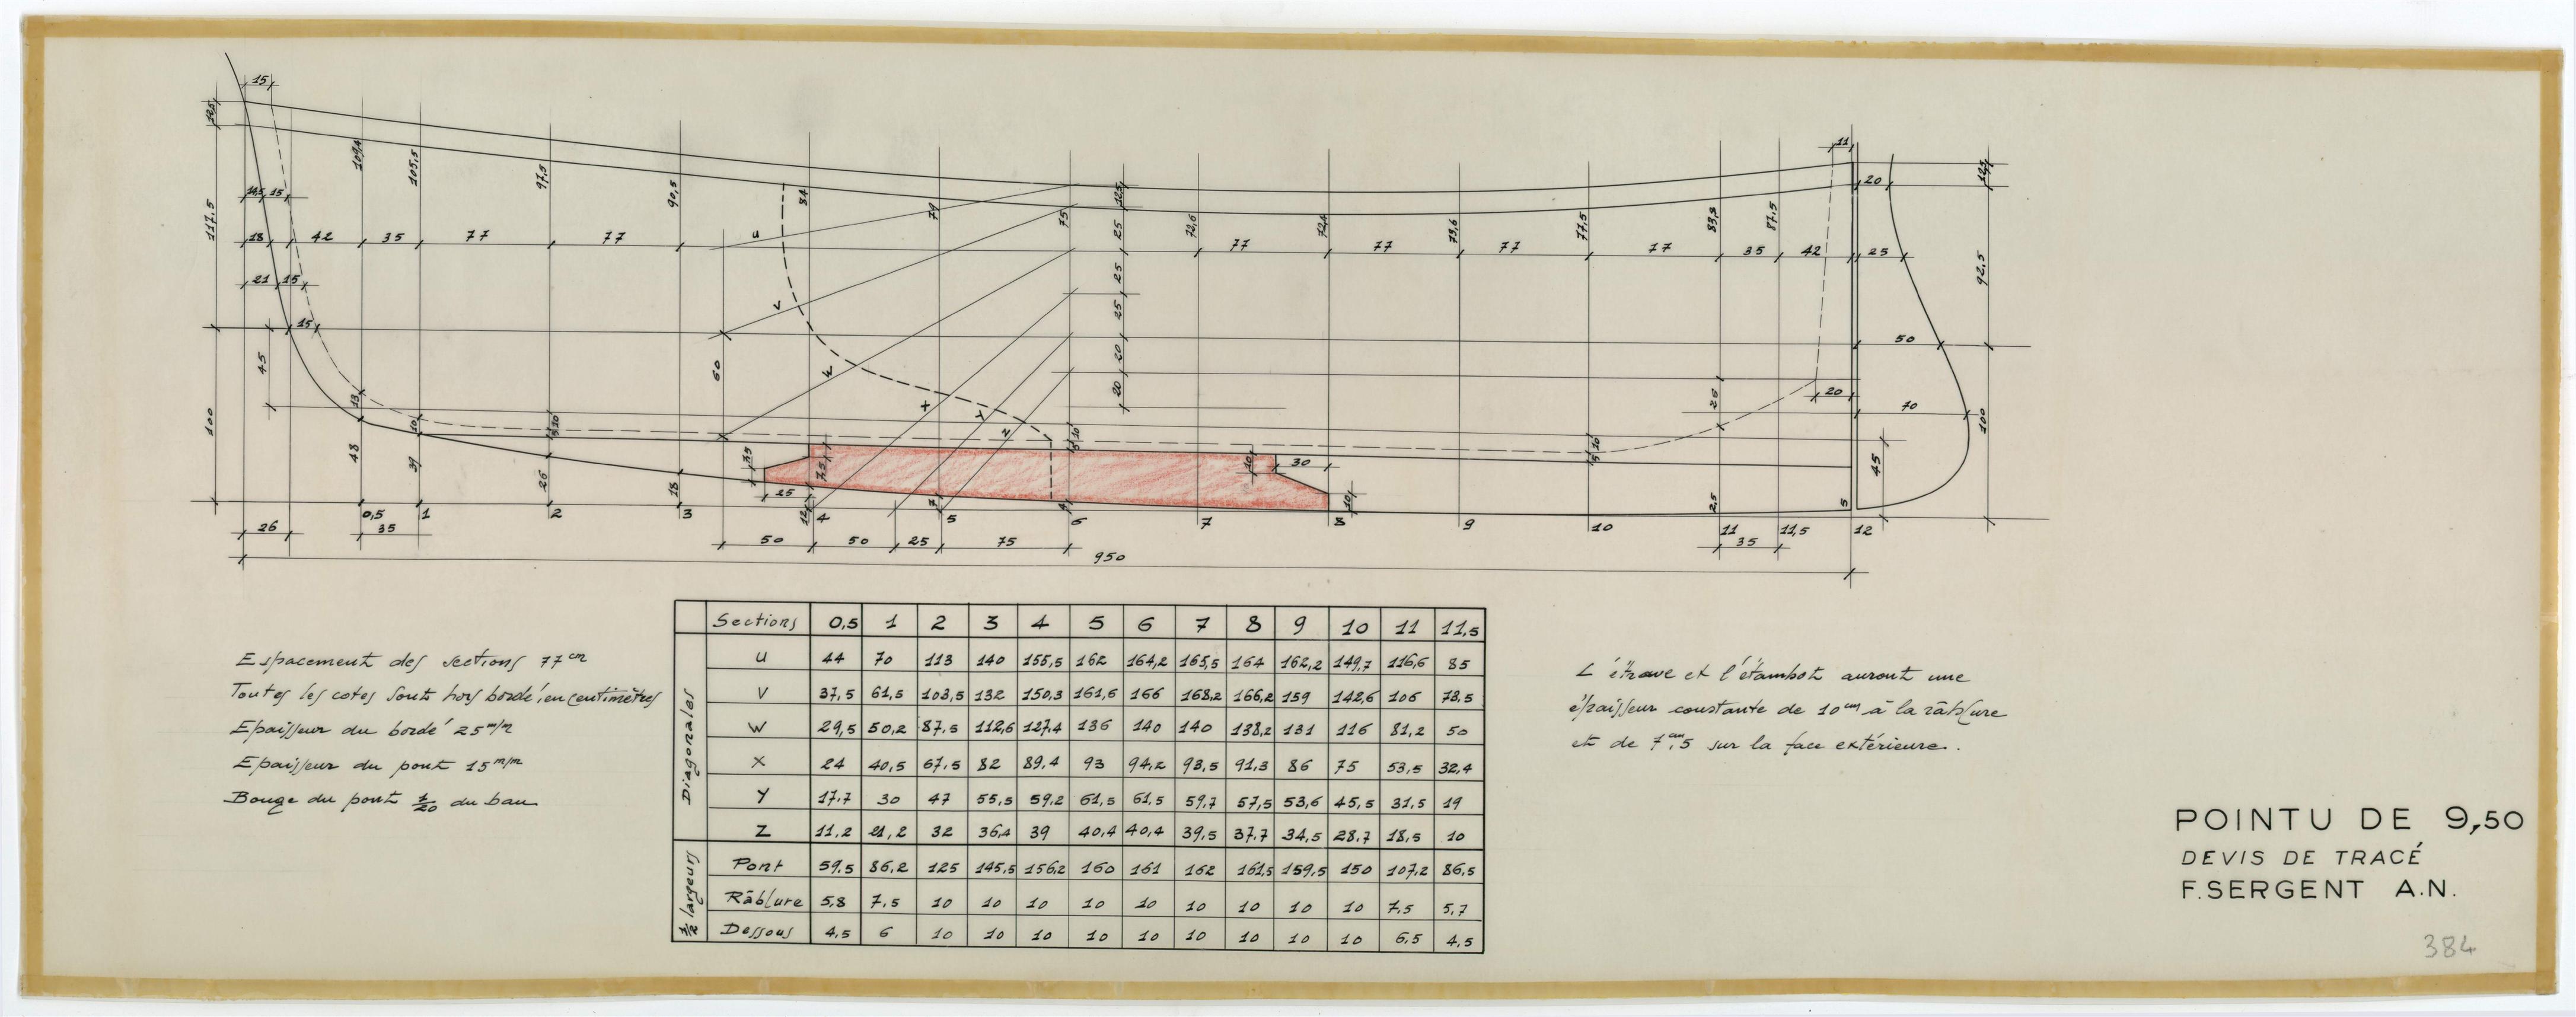 15
12,5
109,4
105,5
97,5
90,5
84
79
75
12,5
73,6
72,4
73,6
77,5
83,8
87,5
11
20
12,5
14,5 15
117,5
18 42 35 77 77
u
25
77 77 77 77 35 42 25
92,5
21 15
25
V
25
15
45
60
20
50
W
20
13
10
X
Y
Z
25
20
70
100
100
48
39
26
18
35
7,5
25
10
30
10
45
5 10
5 10
5 10
12
7
4
2,5
5
0,5 1 2 3 4 5 6 7 8 9 10 11 11,5 12
26 35
50 50 25 75
35
950
Espacement des sections 77 cm
Toutes les cotes sont hors bordé, en centimètres
Epaisseur du bordé 25 m/m
Epaisseur du pont 15 m/m
Bouge du pont 1/20 du bau
Sections 0,5 1 2 3 4 5 6 7 8 9 10 11 11,5
Diagonales
U 44 70 113 140 155,5 162 164,2 165,5 164 162,2 149,7 116,6 85
V 37,5 61,5 103,5 132 150,3 161,6 166 168,2 166,2 159 142,6 106 73,5
W 29,5 50,2 87,5 112,6 127,4 136 140 140 138,2 131 116 81,2 50
X 24 40,5 67,5 82 89,4 93 94,2 93,5 91,3 86 75 53,5 32,4
Y 17,7 30 47 55,5 59,2 61,5 61,5 59,7 57,5 53,6 45,5 31,5 19
Z 11,2 21,2 32 36,4 39 40,4 40,4 39,5 37,7 34,5 28,7 18,5 10
1/2 largeurs
Pont 59,5 86,2 125 145,5 156,2 160 161 162 161,5 159,5 150 107,2 86,5
Râblure 5,8 7,5 10 10 10 10 10 10 10 10 10 7,5 5,7
Dessous 4,5 6 10 10 10 10 10 10 10 10 10 6,5 4,5
L'étrave et l'étambot auront une
épaisseur constante de 10 cm à la râblure
et de 7 cm,5 sur la face extérieure.
POINTU DE 9,50
DEVIS DE TRACÉ
F. SERGENT A.N.
384